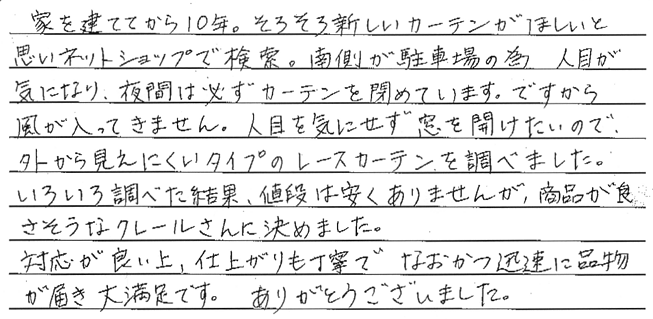 家を建ててから10年。そろそろ新しいカーテンがほしいと
思いネットショップで検索。南側が駐車場の為 人目が
気になり、夜間は必ずカーテンを閉めています。ですから
風が入ってきません。人目を気にせず窓を開けたいので、
外から見えにくいタイプのレースカーテンを調べました。
いろいろ調べた結果、値段は安くありませんが、商品が良
さそうなクレールさんに決めました。
対応が良い上、仕上がりも丁寧で なおかつ迅速に品物
が届き大満足です。 ありがとうございました。